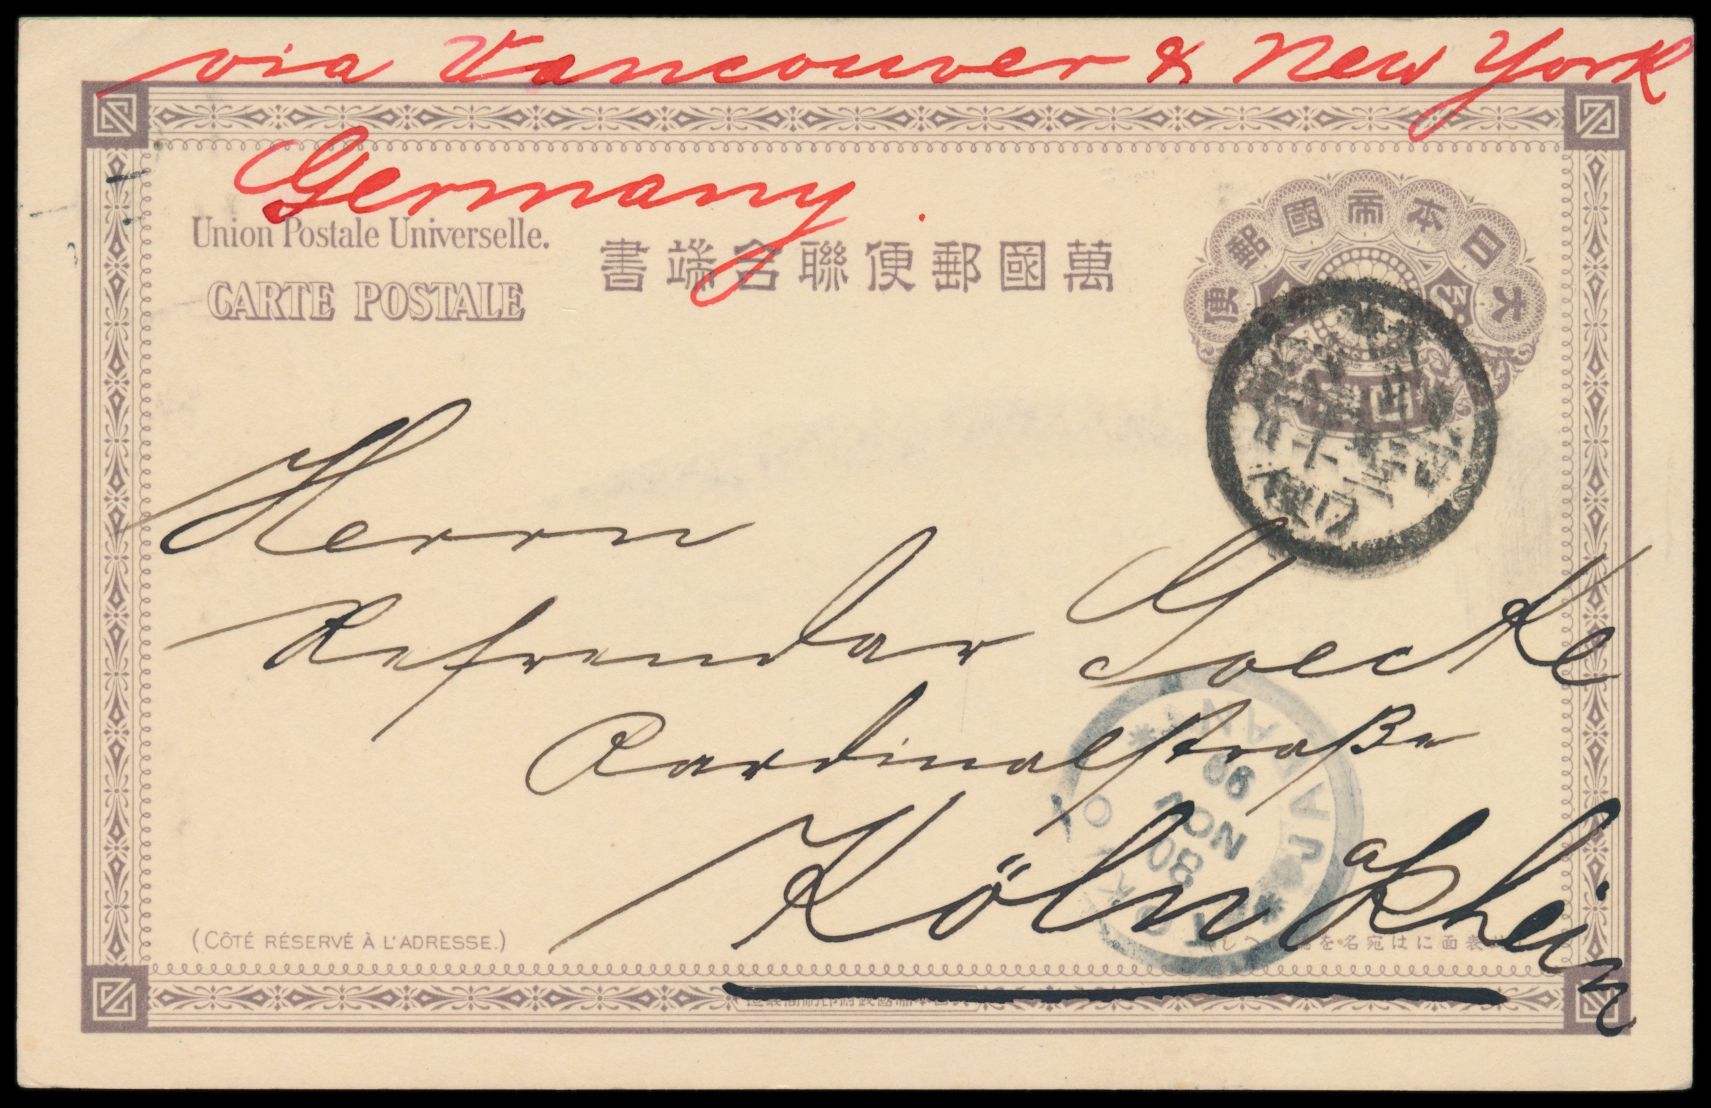 via Vancouver & New York
Germany.
大日本帝國郵便
Union Postale Universelle.
CARTE POSTALE
萬國郵便聯合端書
SN
Herrn
Refrendar Goecke
Kardinalstraße
Köln a Rhein
TOKIO JAPAN
30
NOV
99
(CÔTÉ RÉSERVÉ À L'ADRESSE.)